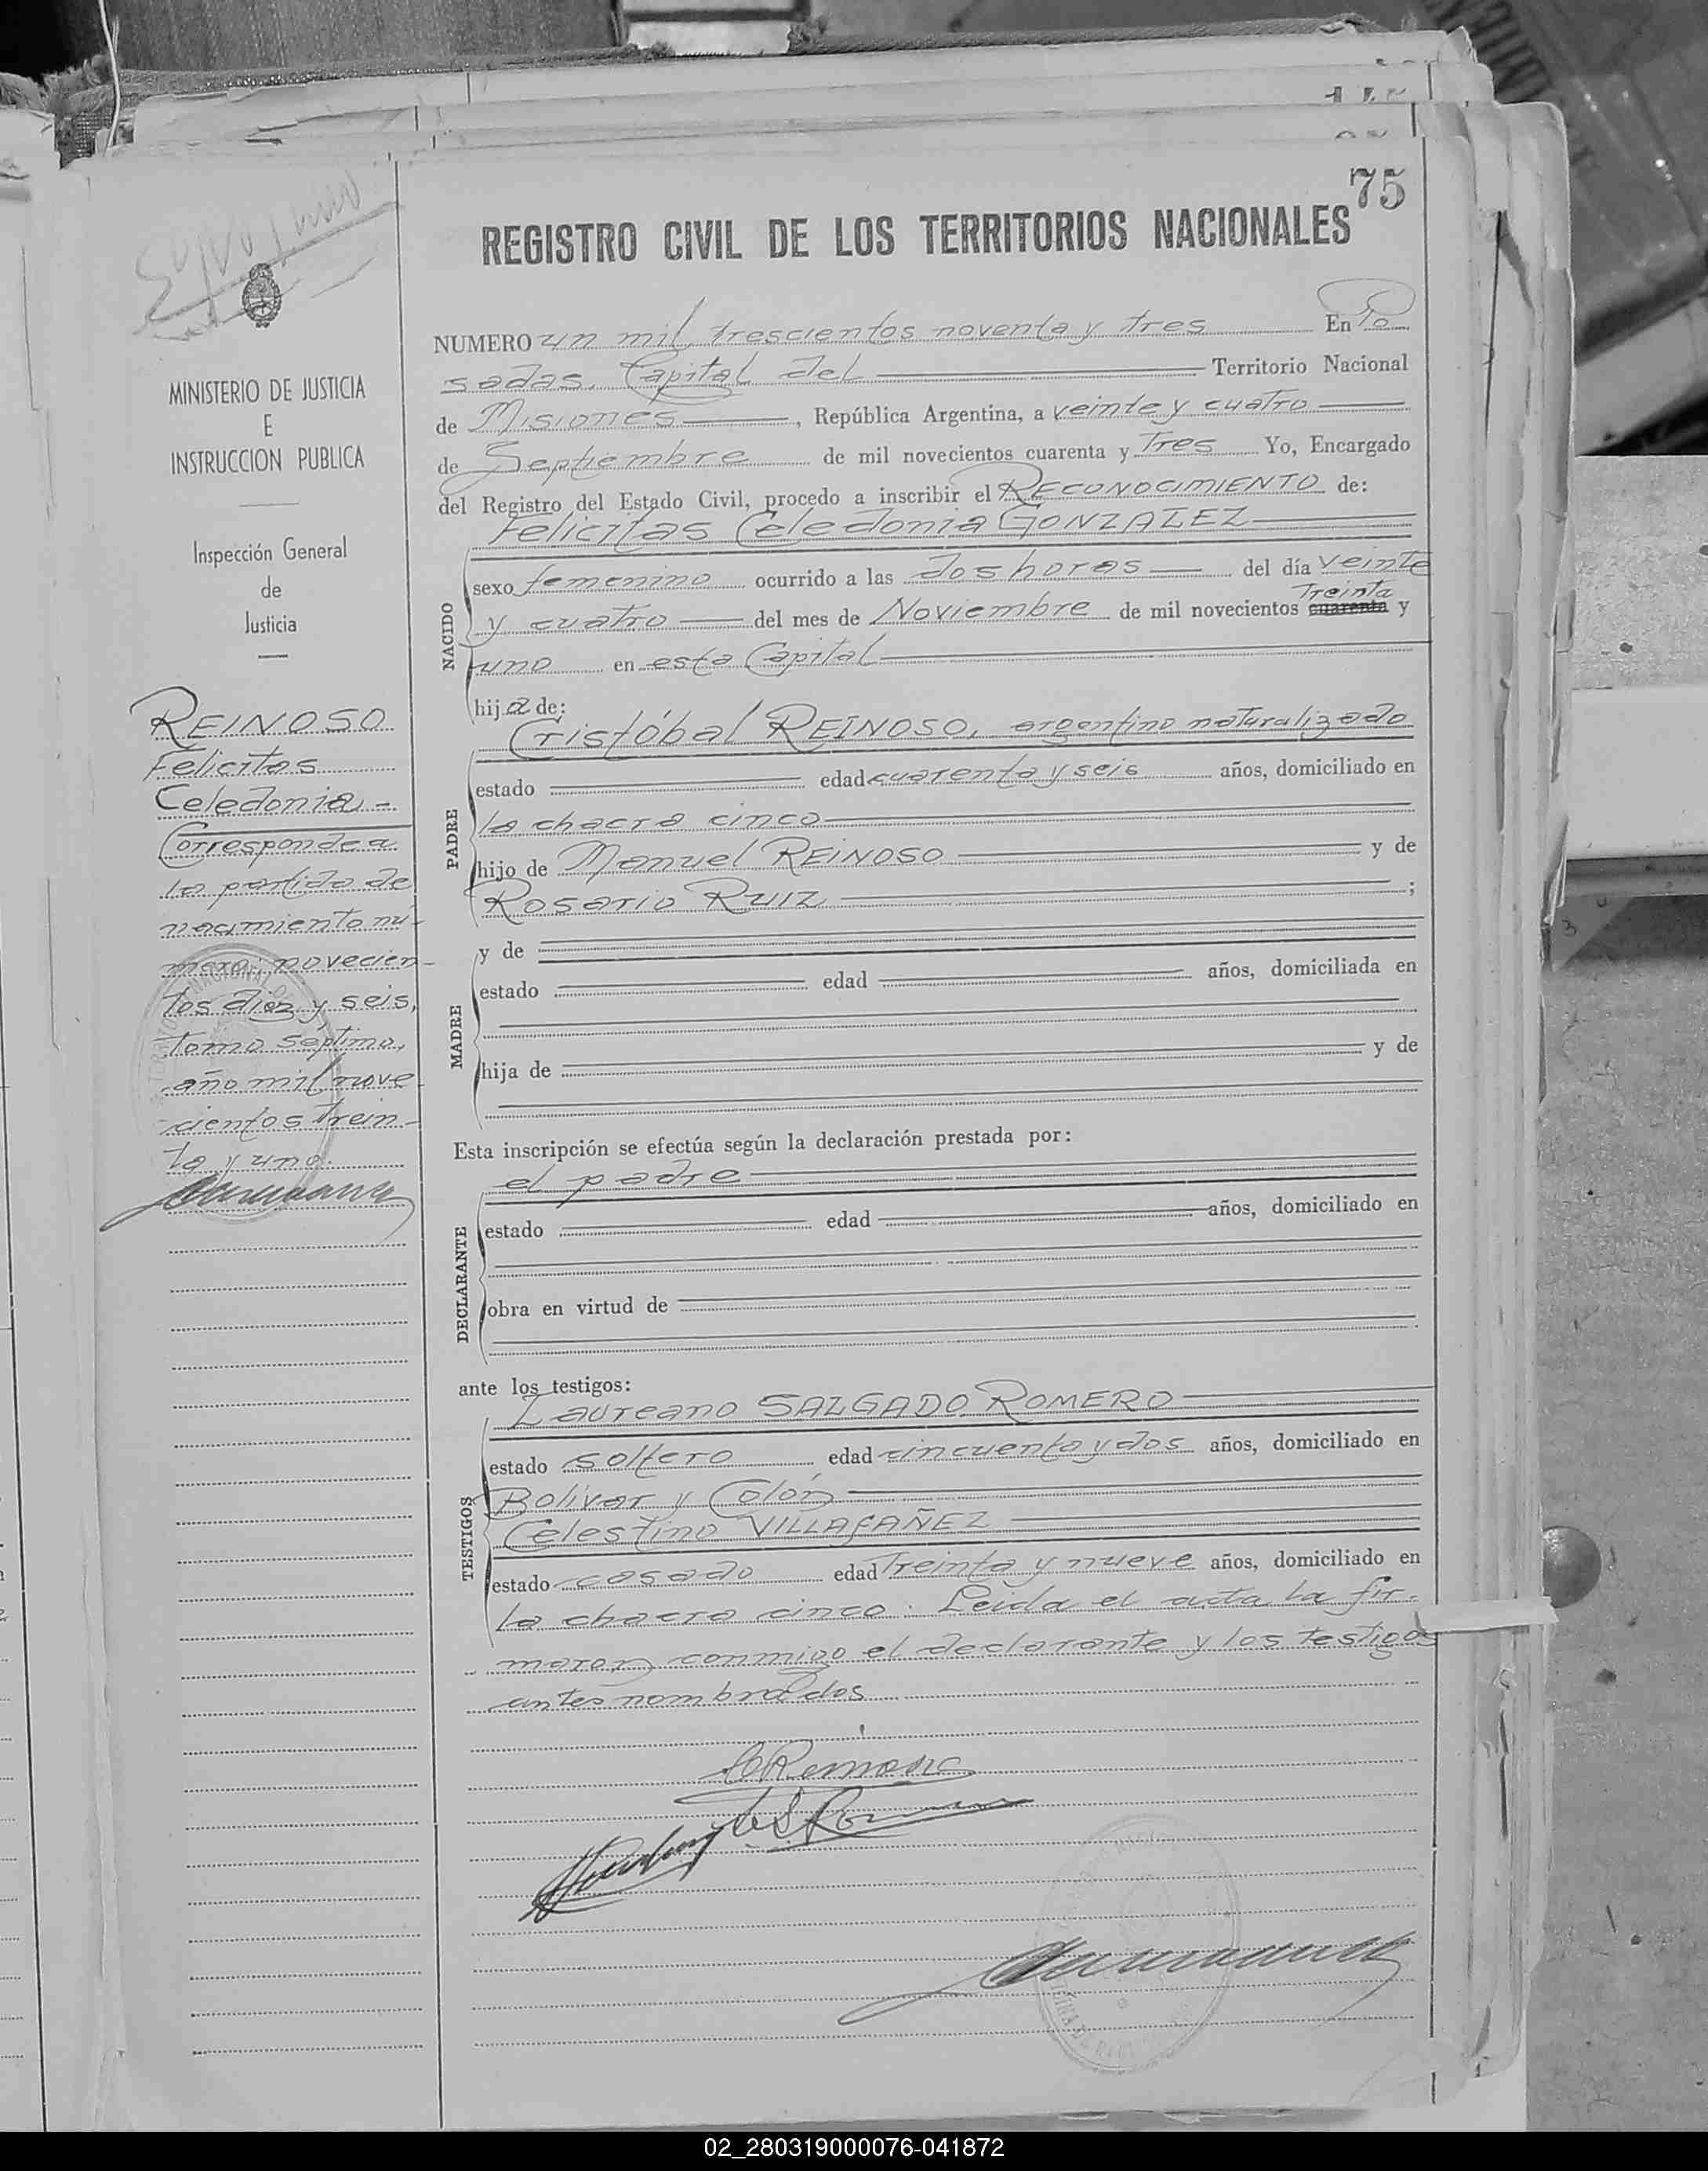 75
REGISTRO CIVIL DE LOS TERRITORIOS NACIONALES
MINISTERIO DE JUSTICIA
E
INSTRUCCION PUBLICA
Inspección General
de
Justicia
REINOSO
Felicitas
Celedonia -
Corresponde a
la partida de
nacimiento nú-
mero: novecien-
tos diez y seis,
tomo séptimo,
año mil nove
cientos trein-
ta y uno.
NUMERO un mil trescientos noventa y tres En Po
sadas, Capital del Territorio Nacional
de Misiones, República Argentina, a veinte y cuatro
de Septiembre de mil novecientos cuarenta y Tres Yo, Encargado
del Registro del Estado Civil, procedo a inscribir el RECONOCIMIENTO de:
Felicitas Celedonia GONZALEZ
NACIDO
sexo femenino ocurrido a las dos horas del día veinte
Treinta
y cuatro del mes de Noviembre de mil novecientos cuarenta y
uno en esta Capital
hija de:
Cristóbal REINOSO, argentino naturalizado
PADRE
estado edad cuarenta y seis años, domiciliado en
la chacra cinco
hijo de Manuel REINOSO y de
Rosario RUIZ ;
y de
MADRE
estado edad años, domiciliada en
hija de y de
Esta inscripción se efectúa según la declaración prestada por:
el padre
DECLARANTE
estado edad años, domiciliado en
obra en virtud de
ante los testigos:
Laureano SALGADO ROMERO
TESTIGOS
estado soltero edad cincuenta y dos años, domiciliado en
Bolivar y Colón
Celestino VILLAFAÑEZ
estado casado edad Treinta y nueve años, domiciliado en
la chacra cinco. Leida el acta la fir-
maron conmigo el declarante y los testigos
antes nombrados
02_280319000076-041872